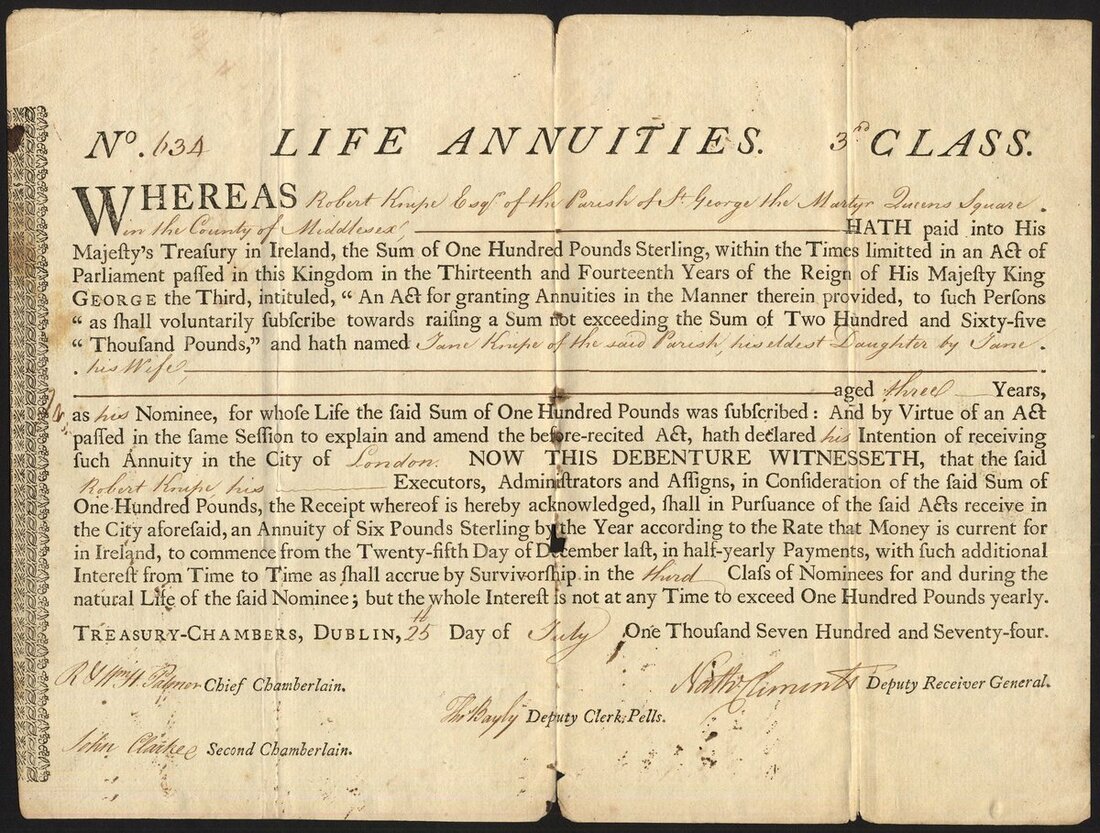 No. 634 LIFE ANNUITIES. 3rd CLASS.
WHEREAS Robert Knipe Esqr. of the Parish of St George the Martyr Queens Square.
in the County of Middlesex, HATH paid into His
Majeſty's Treaſury in Ireland, the Sum of One Hundred Pounds Sterling, within the Times limitted in an Act of
Parliament paſſed in this Kingdom in the Thirteenth and Fourteenth Years of the Reign of His Majeſty King
GEORGE the Third, intituled, “ An Act for granting Annuities in the Manner therein provided, to ſuch Perſons
“ as ſhall voluntarily ſubſcribe towards raiſing a Sum not exceeding the Sum of Two Hundred and Sixty-five
“ Thouſand Pounds,” and hath named Jane Knipe of the said Parish, his eldest Daughter by Jane.
. his Wife,
aged three Years,
as his Nominee, for whoſe Life the ſaid Sum of One Hundred Pounds was ſubſcribed: And by Virtue of an Act
paſſed in the ſame Seſſion to explain and amend the before-recited Act, hath declared his Intention of receiving
ſuch Annuity in the City of London. NOW THIS DEBENTURE WITNESSETH, that the ſaid
Robert Knipe, his Executors, Adminiſtrators and Aſſigns, in Conſideration of the ſaid Sum of
One Hundred Pounds, the Receipt whereof is hereby acknowledged, ſhall in Purſuance of the ſaid Acts receive in
the City aforeſaid, an Annuity of Six Pounds Sterling by the Year according to the Rate that Money is current for
in Ireland, to commence from the Twenty-fifth Day of December laſt, in half-yearly Payments, with ſuch additional
Intereſt from Time to Time as ſhall accrue by Survivorſhip in the third Claſs of Nominees for and during the
natural Life of the ſaid Nominee; but the whole Intereſt is not at any Time to exceed One Hundred Pounds yearly.
TREASURY-CHAMBERS, DUBLIN, 25th Day of July One Thouſand Seven Hundred and Seventy-four.
R & Wm. H. Palmer Chief Chamberlain.
Nathl. Clements Deputy Receiver General.
Thos. Bayly Deputy Clerk Pells.
John Clarke Second Chamberlain.